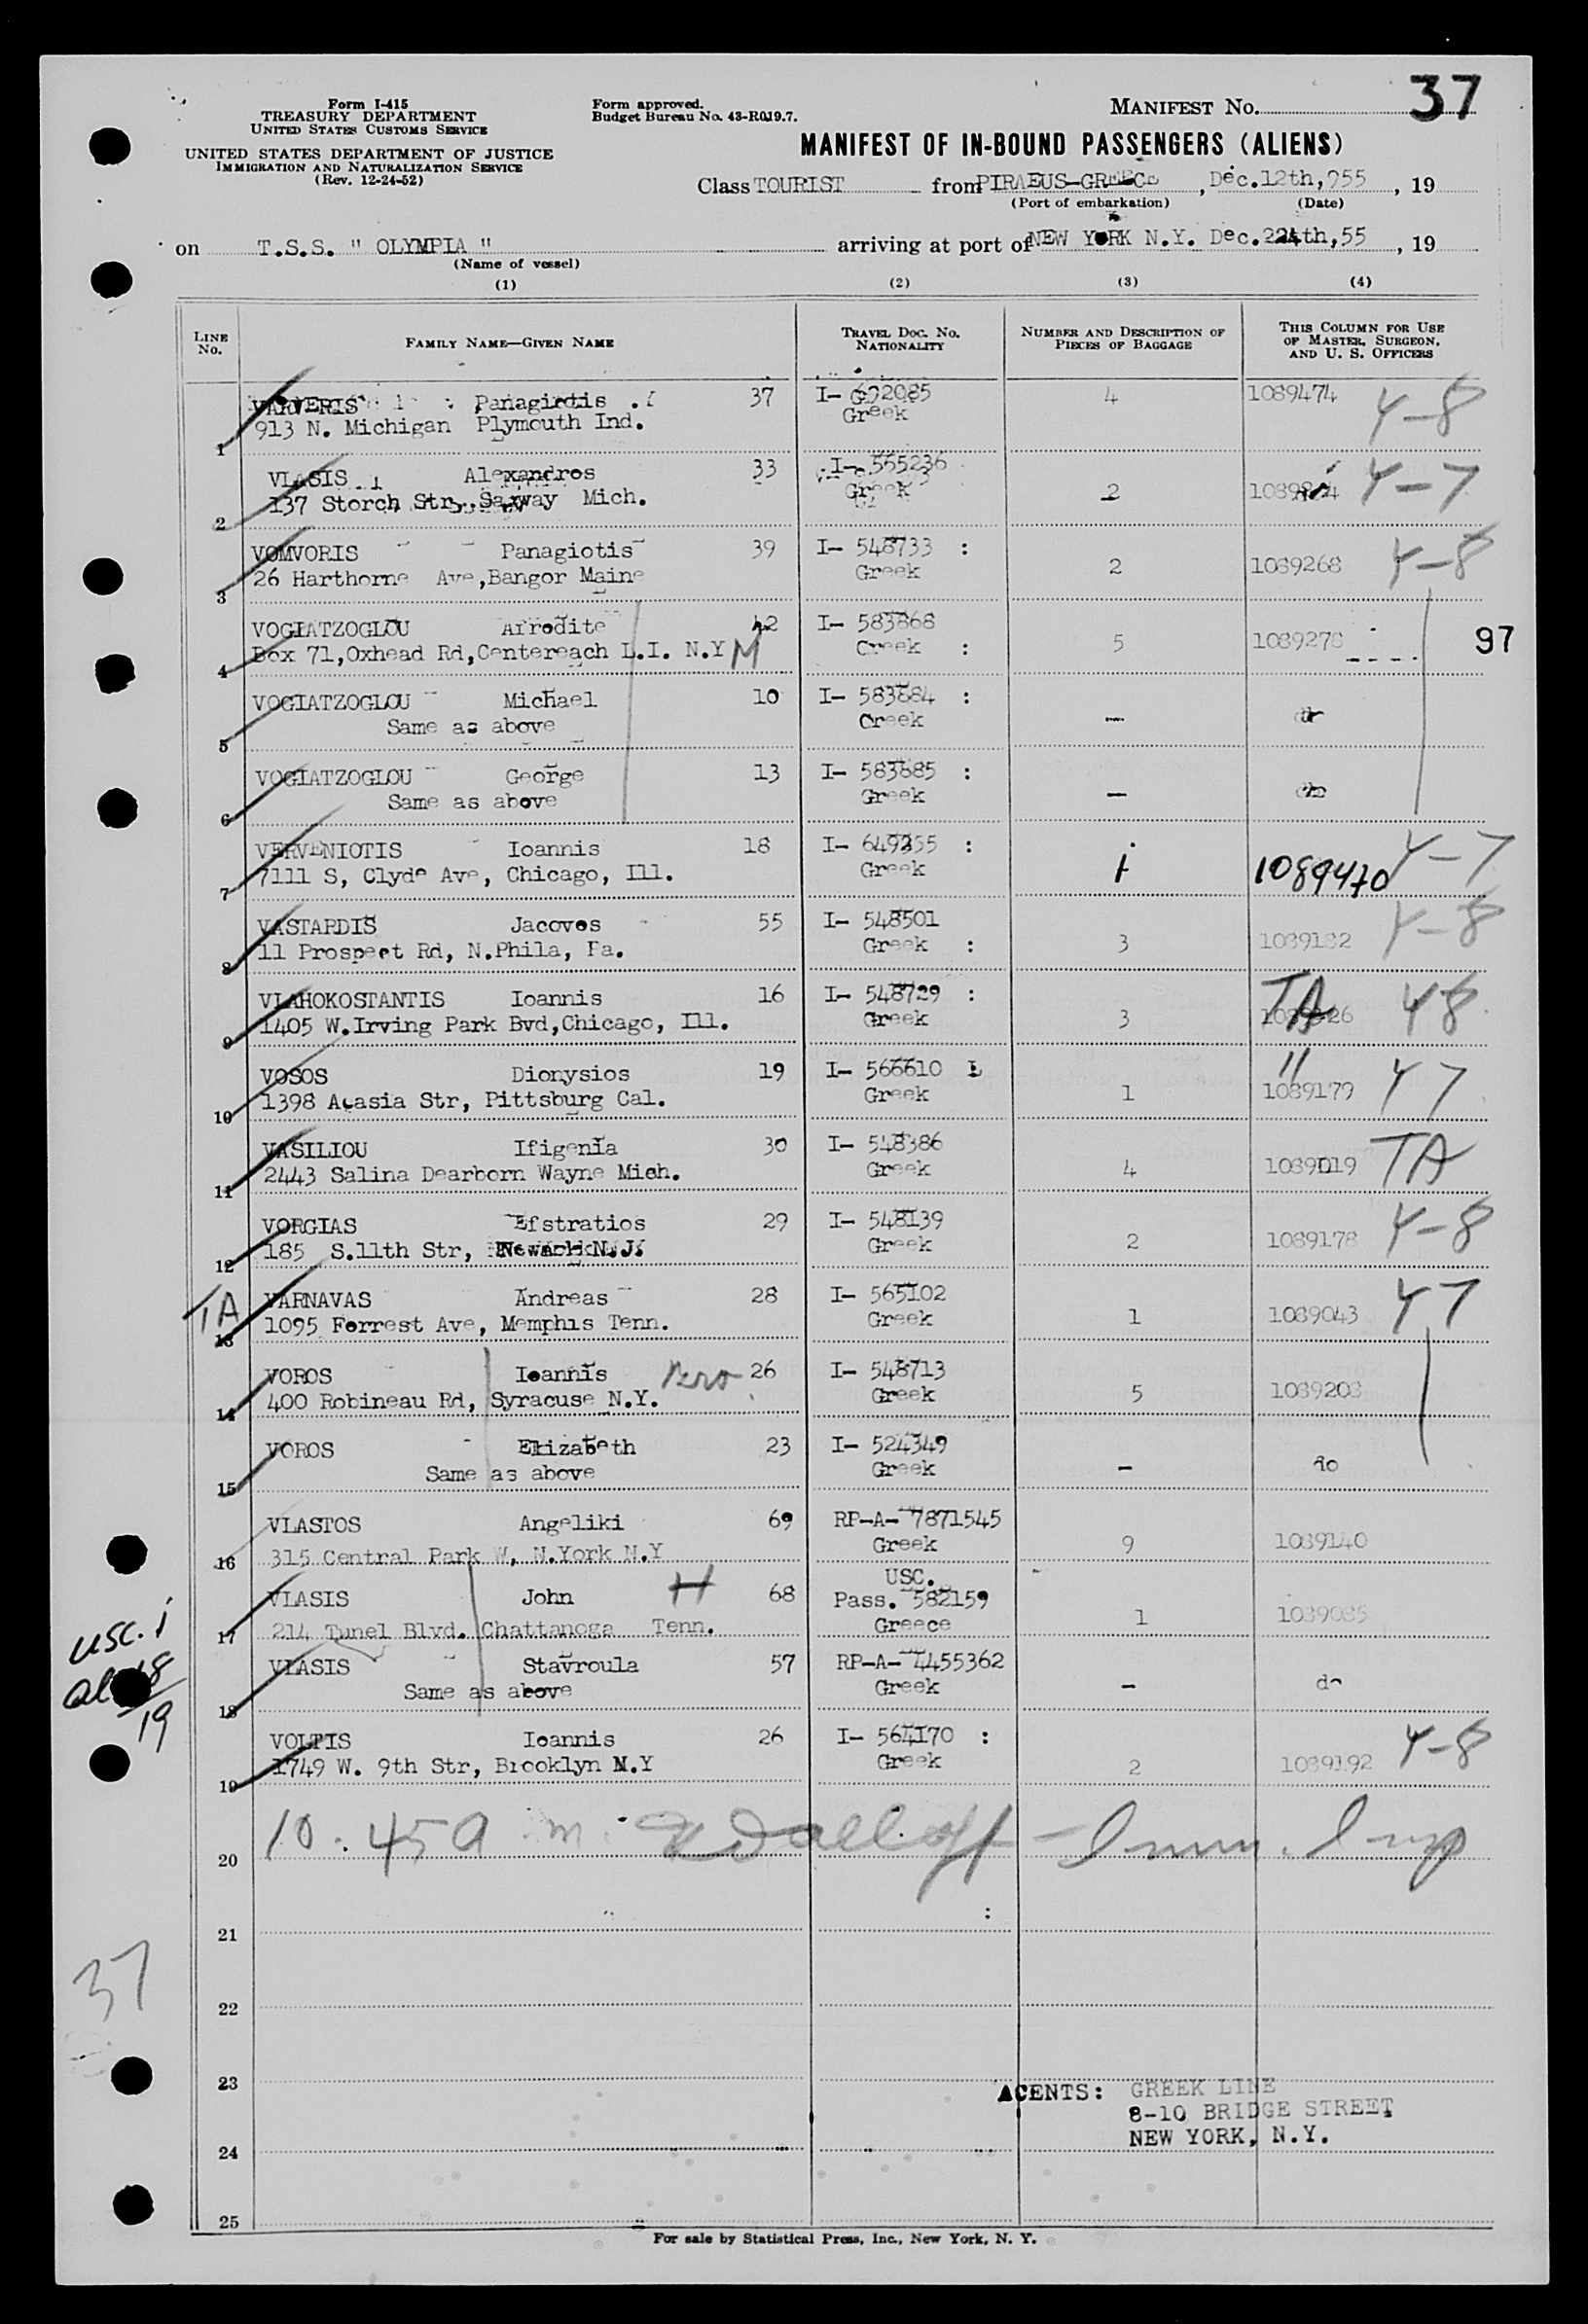 37
Form I-415
TREASURY DEPARTMENT
UNITED STATES CUSTOMS SERVICE
UNITED STATES DEPARTMENT OF JUSTICE
IMMIGRATION AND NATURALIZATION SERVICE
(Rev. 12-24-52)
Form approved.
Budget Bureau No. 43-R019.7.
MANIFEST No.
MANIFEST OF IN-BOUND PASSENGERS (ALIENS)
Class TOURIST from PIRAEUS-GREECE, Dec.12th,955, 19
(Port of embarkation) (Date)
on T.S.S. " OLYMPIA " arriving at port of NEW YORK N.Y. Dec.224th,55, 19
(Name of vessel)
(1) (2) (3) (4)
LINE No. FAMILY NAME—GIVEN NAME TRAVEL DOC. No. NATIONALITY NUMBER AND DESCRIPTION OF PIECES OF BAGGAGE THIS COLUMN FOR USE OF MASTER, SURGEON, AND U. S. OFFICERS
VARVERIS Panagiotis 37 I- 4 1089474 4-8
1 913 N. Michigan Plymouth Ind. Greek
VLASIS Alexandros 33 I- 555236 2 4-7
2 137 Storch Str., Mich. Greek
VOMVORIS Panagiotis 39 I- 548733 : 2 1089268 4-8
3 26 Harthorne Ave,Bangor Maine Greek
VOGIATZOGLOU Afrodite 42 I- 583868 5 1089278 97
4 Box 71,Oxhead Rd,Centereach L.I. N.Y M Greek :
VOGIATZOGLOU Michael 10 I- 583884 : — do
5 Same as above Greek
VOGIATZOGLOU George 13 I- 583885 : — do
6 Same as above Greek
VERVENIOTIS Ioannis 18 I- : 1 1089470 4-7
7 7111 S, Clyde Ave, Chicago, Ill. Greek
VASTARDIS Jacovos 55 I- 548501 3 1089182 4-8
8 11 Prospect Rd, N.Phila, Pa. Greek :
VLAHOKOSTANTIS Ioannis 16 I- 548729 : 3 TA 48
9 1405 W.Irving Park Bvd,Chicago, Ill. Greek
VOSOS Dionysios 19 I- 566610 1 " 1089179 47
10 1398 Acasia Str, Pittsburg Cal. Greek
VASILIOU Ifigenia 30 I- 548386 4 1089019 TA
11 2443 Salina Dearborn Wayne Mich. Greek
VORGIAS Efstratios 29 I- 548139 2 1089178 4-8
12 185 S.11th Str, Newark N.J. Greek
TA VARNAVAS Andreas 28 I- 565102 1 1089043 47
13 1095 Forrest Ave, Memphis Tenn. Greek
VOROS Ioannis 26 I- 548713 5 1089203
14 400 Robineau Rd, Syracuse N.Y. Greek
VOROS Elizabeth 23 I- 524349 — do
15 Same as above Greek
VLASTOS Angeliki 69 RP-A- 7871545 9 1089140
16 315 Central Park W, N.York N.Y Greek
USC.
VLASIS John H 68 Pass. 582159 1 1089085
17 214 Tunel Blvd. Chattanoga Tenn. Greece
VLASIS Stavroula 57 RP-A- 4455362 — do
18 Same as above Greek
VOLTIS Ioannis 26 I- 564170 : 2 1089192 4-8
19 1749 W. 9th Str, Brooklyn N.Y Greek
usc. 1
al 18
19
20 10:45 a m. Imm. Insp
21
37
22
23
AGENTS: GREEK LINE
8-10 BRIDGE STREET
NEW YORK, N.Y.
24
25
For sale by Statistical Press, Inc., New York, N. Y.